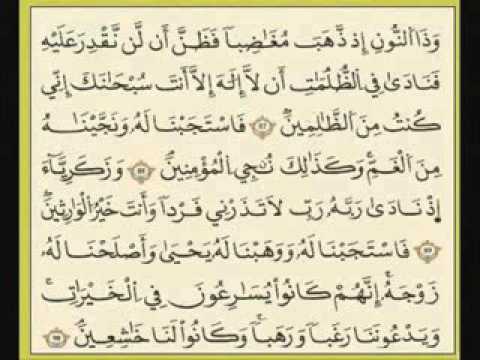 وَذَا ٱلنُّونِ إِذ ذَّهَبَ مُغَٰضِبًا فَظَنَّ أَن لَّن نَّقْدِرَ عَلَيْهِ
فَنَادَىٰ فِي ٱلظُّلُمَٰتِ أَن لَّآ إِلَٰهَ إِلَّآ أَنتَ سُبْحَٰنَكَ إِنِّي
كُنتُ مِنَ ٱلظَّٰلِمِينَ ٨٧ فَٱسْتَجَبْنَا لَهُۥ وَنَجَّيْنَٰهُ
مِنَ ٱلْغَمِّ وَكَذَٰلِكَ نُـۨجِي ٱلْمُؤْمِنِينَ ٨٨ وَزَكَرِيَّآءَ
إِذْ نَادَىٰ رَبَّهُۥ رَبِّ لَا تَذَرْنِي فَرْدًا وَأَنتَ خَيْرُ ٱلْوَٰرِثِينَ
٨٩ فَٱسْتَجَبْنَا لَهُۥ وَوَهَبْنَا لَهُۥ يَحْيَىٰ وَأَصْلَحْنَا لَهُۥ
زَوْجَهُۥٓ إِنَّهُمْ كَانُوا۟ يُسَٰرِعُونَ فِي ٱلْخَيْرَٰتِ
وَيَدْعُونَنَا رَغَبًا وَرَهَبًا وَكَانُوا۟ لَنَا خَٰشِعِينَ ٩٠